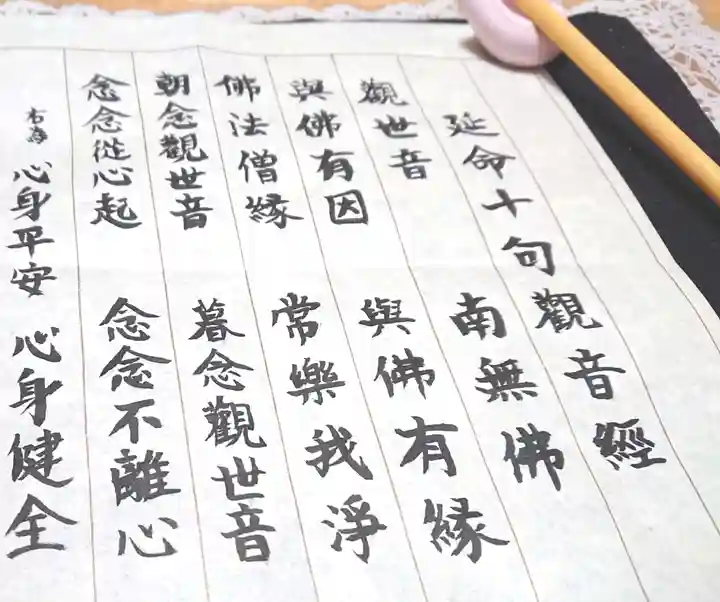 延命十句觀音經
觀世音 南無佛
與佛有因 與佛有縁
佛法僧縁 常樂我淨
朝念觀世音 暮念觀世音
念念從心起 念念不離心
右為 心身平安 心身健全